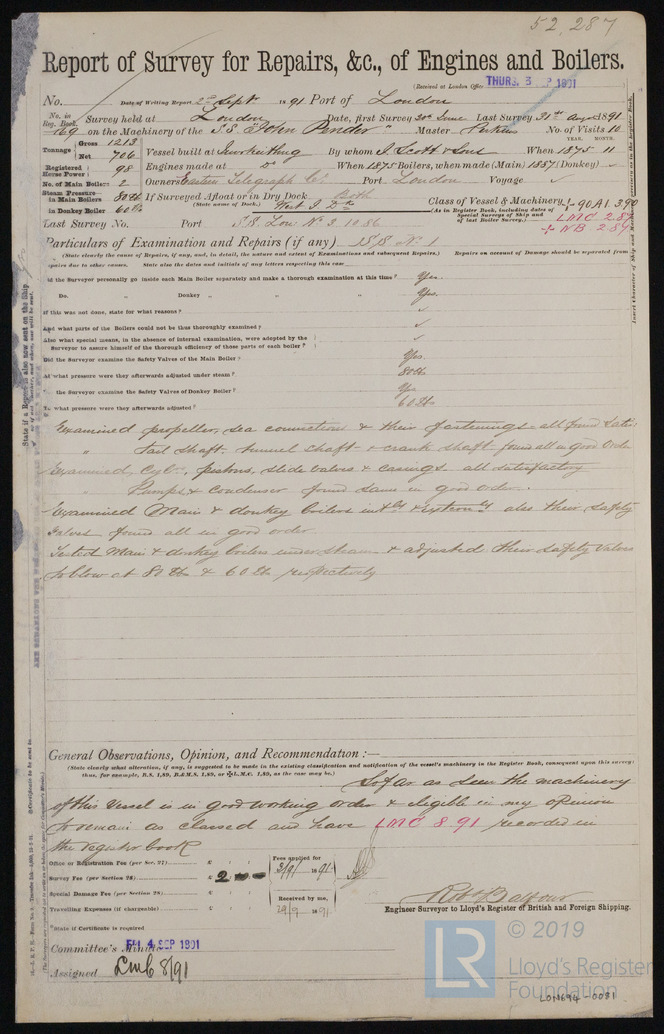 52,287
Report of Survey for Repairs, &c., of Engines and Boilers.
(Received at London Office THURS. 3 SEP 1891)
No. Date of Writing Report 2nd Sept 1891 Port of London
No. in Reg. Book. Survey held at London Date, first Survey 20th June Last Survey 31st Augst 1891
169 on the Machinery of the "S.S. John Pender" Master No. of Visits 10
Tonnage Gross 1213 Net 706 Vessel built at By whom J. Scott & Sons When 1875 YEAR. 11 MONTH.
Registered Horse Power 98 Engines made at Do When 1875 Boilers, when made (Main) 1887 (Donkey)
No. of Main Boilers 2 Owners Eastern Telegraph Co. Port London Voyage ✓
Steam Pressure in Main Boilers 80 lb in Donkey Boiler 60 lb If Surveyed Afloat or in Dry Dock Both
(State name of Dock.) West I. Dks
Class of Vessel & Machinery 90A1 3,90
(As in Register Book, including dates of Special Surveys of Ship and of last Boiler Survey.) LMC 2.87
NB 2.87
Last Survey No. Port S.S. Lon No 3 10 86
Particulars of Examination and Repairs (if any) SS No 1
(State clearly the cause of Repairs, if any, and, in detail, the nature and extent of Examinations and subsequent Repairs.) Repairs on account of Damage should be separated from
repairs due to other causes. State also the dates and initials of any letters respecting this case
Did the Surveyor personally go inside each Main Boiler separately and make a thorough examination at this time? Yes.
Do. „ Donkey „ „ „ Yes.
If this was not done, state for what reasons? ✓
And what parts of the Boilers could not be thoroughly examined? ✓
Also what special means, in the absence of internal examination, were adopted by the
Surveyor to assure himself of the thorough efficiency of those parts of each boiler? ✓
Did the Surveyor examine the Safety Valves of the Main Boiler? Yes.
At what pressure were they afterwards adjusted under steam? 80 lb
the Surveyor examine the Safety Valves of Donkey Boiler? Yes
To what pressure were they afterwards adjusted? 60 lb
Examined propeller, sea connections & their fastenings all found satis:
„ Tail shaft, tunnel shaft & crank shaft found all in good order
Examined, Cylrs, pistons, slide valves & casings all satisfactory
„ Pumps & condenser found same in good order.
Examined Main & donkey boilers intly & externly also their safety
valves found all in good order
Tested Main & donkey boilers under steam & adjusted their safety valves
to blow at 80 lbs & 60 lbs respectively
General Observations, Opinion, and Recommendation :—
(State clearly what alteration, if any, is suggested to be made in the existing classification and notification of the vessel's machinery in the Register Book, consequent upon this survey:
thus, for example, B.S. 1,89, B.&M.S. 1,89, or L.M.C. 1,89, as the case may be.)
So far as seen the machinery
of this vessel is in good working order & eligible in my opinion
to remain as classed and have LMC 8 91 recorded in
the register book
Office or Registration Fee (per Sec. 27) £ : :
Survey Fee (per Section 28) £ 2 : :
Special Damage Fee (per Section 28) £ : :
Travelling Expenses (if chargeable) £ : :
Fees applied for
3/9/ 1891
Received by me,
29/9 1891
*State if Certificate is required
Robt Balfour
Engineer Surveyor to Lloyd's Register of British and Foreign Shipping.
Committee's Minute FRI. 4 SEP 1891
Assigned LMC 8/91
LR © 2019
Lloyd's Register
Foundation
LON694-0081